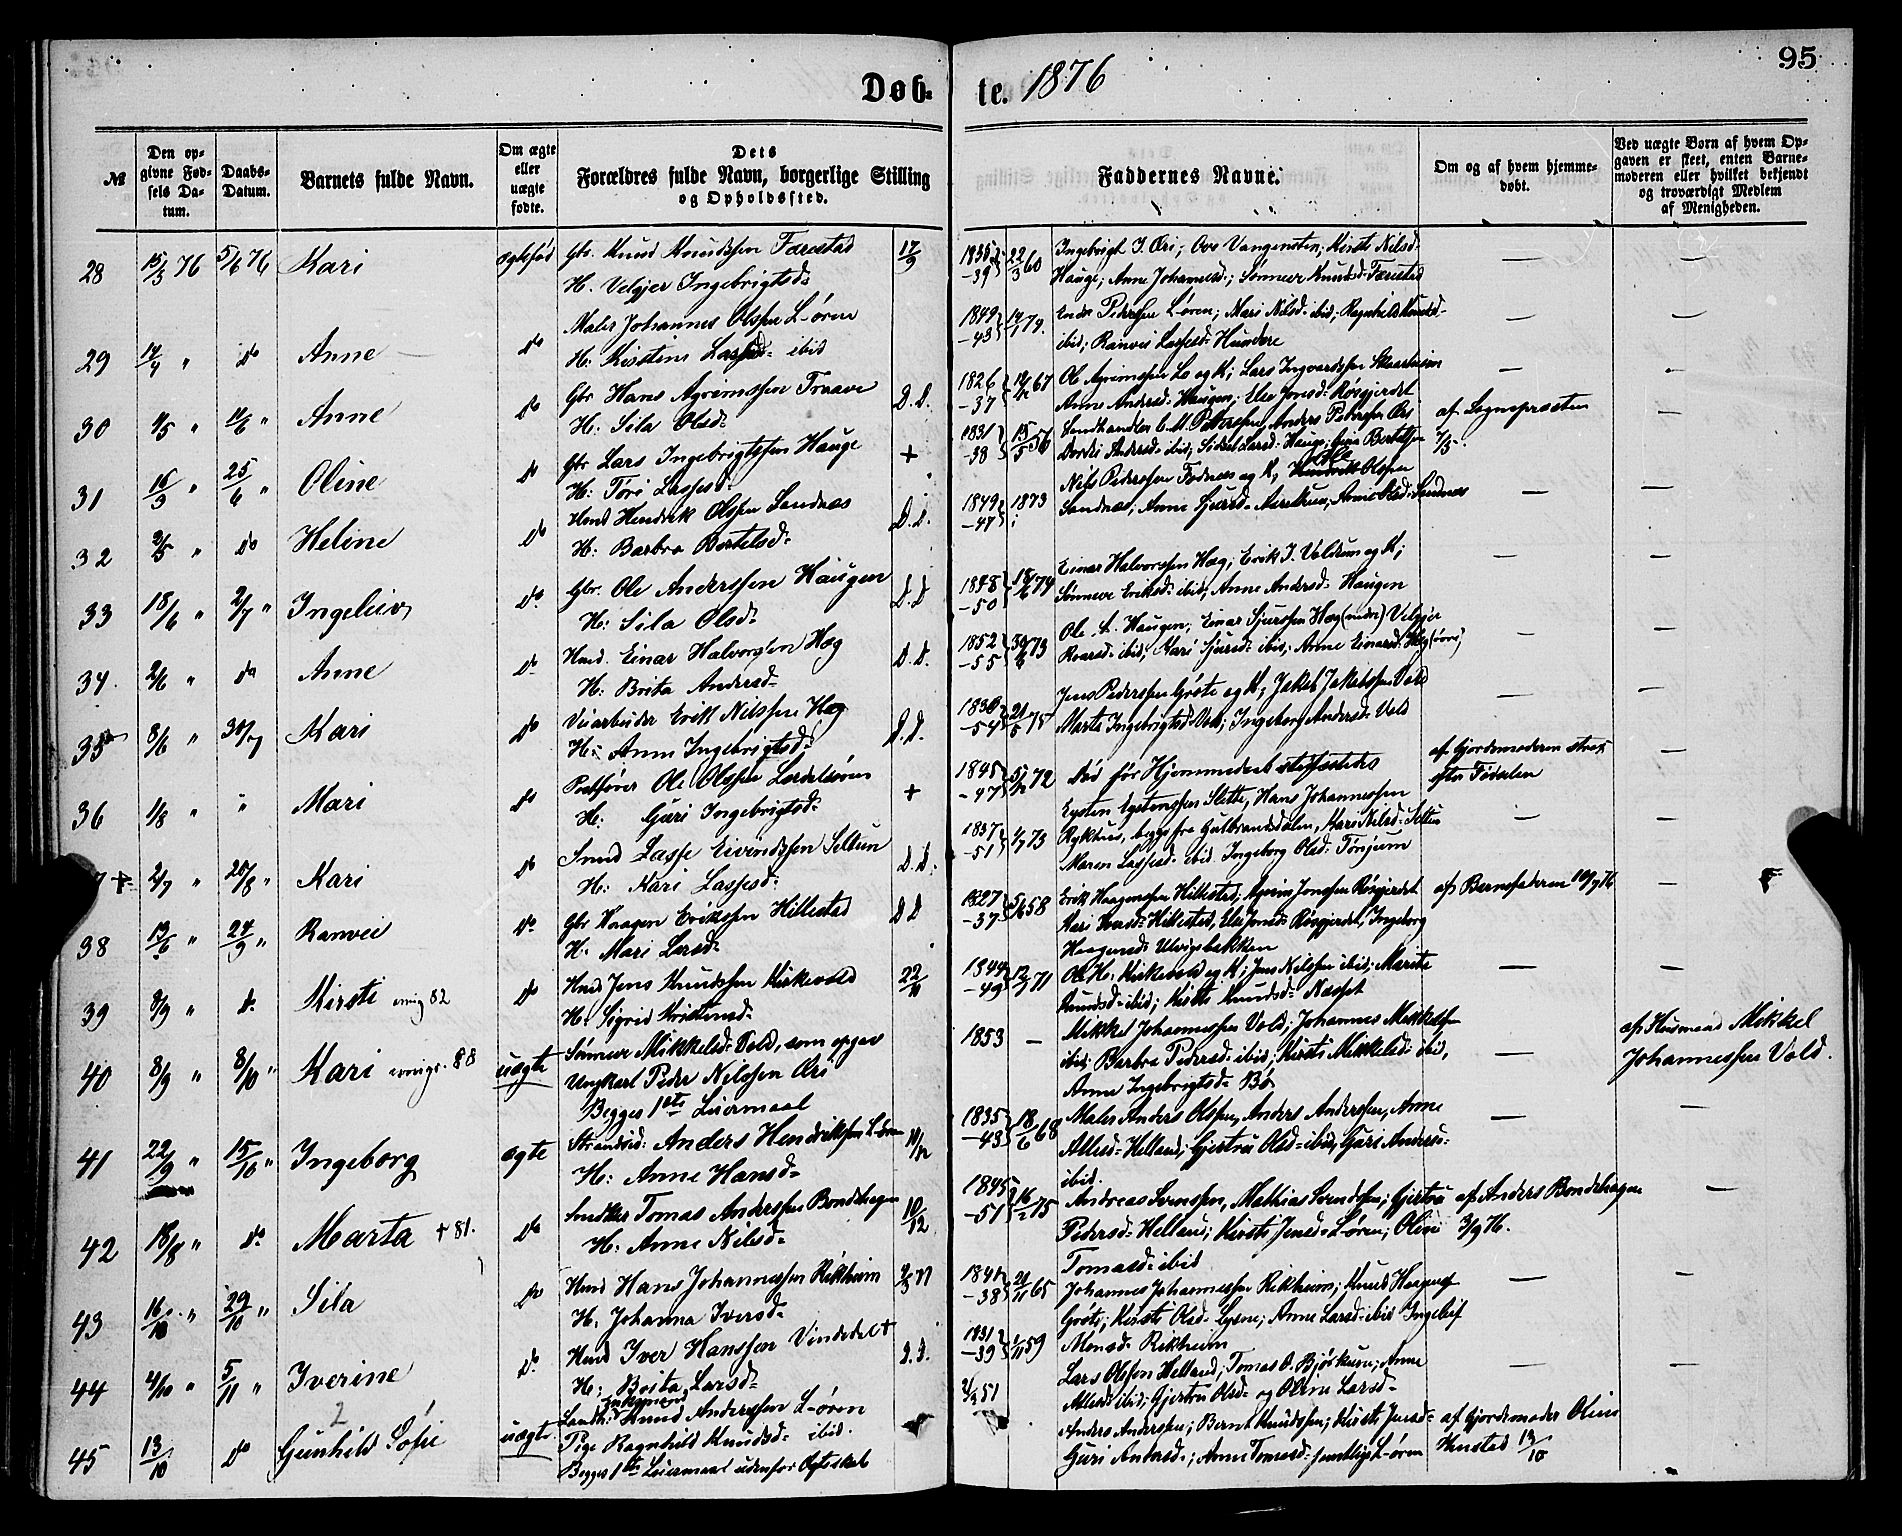 95
Døb- te. 1876
№
Den op-
givne Fød-
sels Da-
tum.
Daabs-
Datum.
Barnets fulde Navn.
Om ægte
eller
uægte
fødte.
Dets
Forældres fulde Navn, borgerlige Stilling
og Opholdssted.
Faddernes Navne.
Om og af hvem hjemme-
døbt.
Ved uægte Børn af hvem Op-
gaven er skeet, enten Barne-
moderen eller hvilket bekjendt
og troværdigt Medlem
af Menigheden.
28 15/3 76 5/6 76 Kari ægtefød Gbr. Knud Knudssen Færestad 17/9
H. Velgjer Ingebrigtsd:
1835 -39 22/3 60 Ingebrigt J. Æri; Ove Vangensten; Kirsti Nilsd-
Hauge; Anne Johannesd:; Sønneve Knudsd: Færestad
29 17/4 " do Anne do Maler Johannes Olssen L-øren
H: Kirstine Lassesd: ibid
1849 -43 Endr Pederssen L-øren; Mari Nilsd- ibid; Ragnhild Knudsd-
ibid; Ranvei Lassesd: Hundere
30 4/5 " 11/6 " Anne do Gbr Hans Agrimssen Traave D.D.
H: Sila Olsd:
1826 -37 67 Ole Agrimssen Lo og K; Lars Ingvardssen
Anne Andersd: Haugen; Else Jonsd: Røsgjerdet
31 16/3 " 25/6 " Oline do Gbr Lars Ingebrigtssen Hauge +
H: Tori Lassesd:
1831 -38 15/5 56 Landhandler Petterssen, Anders Pederssen Æri
Dordi Andersd- ibid; Sidsel Larsd: Hauge; Bertelssen
af Sognepræsten
7/5.
32 3/5 " do Heline do Hmd Hendrik Olssen Sandnæs D.D.
H: Barbra Bertelsd:
1849 -47 1873 Nils Pederssen Fodnæs og K, Olssen
Sandnæs; Anne Sjursd- Anne Olsd: Sandnæs
33 18/6 " 2/7 " Ingeleiv do Gbr. Ole Anderssen Haugen D.D
H: Sila Olsd:
1848 -50 18/6 74 Einar Halvorssen Hæg; Erik J. Voldum og K;
Sønneve Eriksd: ibid; Anne Andersd: Haugen
34. 2/6 " do Anne do Hmd. Einar Halvorssen Hæg D.D.
H: Brita Andersd-
1852 -55 73 Ole A. Haugen; Einar Sjurssen Hæg (nedre) Velgjer
Roarsd- ibid; Kari Sjursd- ibid; Anne Einarsd- Hæg (øvre)
35 8/6 " 30/7 Kari do Veiarbeider Erik Nilssen Hæg D.D.
H: Anne Ingebrigtsd:
1830 -54 75 Jens Pederssen Grøte og K; Jakob Jakobssen Vold
Marta Ingebrigtsd: Vold; Ingeborg Andersd: Vold
36 1/8 " " Mari do Postfører Ole Olssen Lærdalsøren +
H: Guri Ingebrigtsd:
1845 -47 72 Død før Hjemmedaab stadfæstedes
af Gjordemoderen strax
efter Fødselen
2/7 " 20/8 " Kari do Smed Lasse Eivindssen Seltun D.D.
H: Kari Lassesd:
1837 -51 73 Eysten Eystenssen Slette, Hans Johannessen
Rykhus, begge fra Gulbrandsdalen, Kari Nilsd- Seltun
Maren Lassesd- ibid Ingeborg Olsd: Tønjum
38 13/6 " 24/9 " Ranvei do Gbr Haagen Erikssen Hillestad D D
H. Mari Larsd-
1827 -37 58 Erik Haagenssen Hillestad; Agrim Jonssen Røsgjerdet
Kari Hillestad, Else Jonsd: Røsgjerdet; Ingeborg
Haagensd: Ulvigsbakken
af Barnefaderen 76
39 8/9 " do Kirsti emig 82 do Hmd Jens Knudssen Kirkevold 22/11
H: Sigrid Kristensd:
1844 -49 71 Ole H. Kirkevold og K; Jens Nilssen ibid; Marite
Knudsd- ibid; Kirsti Knudsd- Næsset
40 8/9 " 8/10 " Kari emigr. 88 uægte Sønneve Mikkelsd: Vold, som opgav
Ungkarl Peder Nilssen Æri
Begges 1ste Leiermaal
1853 — Mikkel Johannessen Vold; Johannes Mikkelssen
ibid; Barbra Pedersd- ibid; Kirsti Mikkelsd: ibid,
Anne Ingebrigtsd: Bø
af Husmand Mikkel
Johannessen Vold.
41 22/9 " 15/10 " Ingeborg ægte Strandsid: Anders Hendrikssen L-øren
H: Anne Hansd-
1835 -43 18/6 68 Maler Anders Olssen, Anders Anderssen, Anne
Atlesd- Helland; Gjertru Olsd- ibid, Guri Andersd-
ibid.
42 18/8 " do Marta + 81. do Tomas Anderssen Bondehagen 10/12
H: Anne Nilsd-
1845 -51 75 Andreas Svenssen, Mathias Svendssen; Gjertru
Pedersd- Helland; Kirsti Jensd- L-øren; Oline
Tomasd: ibid
af Anders Bondehagen
3/9 76.
43 16/10 " 29/10 " Sila do Hmd Hans Johannessen Rikheim 77
H. Johanna Iversd-
1841 -38 65 Johannes Johannessen Rikheim; Knud Haagens
Grøte; Kirsti Olsd- Lysne; Anne Larsd- ibid Ingeleif
Monsd- Rikheim
44 4/10 " 5/11 " Iverine do Hmd Iver Hanssen Vindedal D.D.
H: Brita Larsd-
1831 -39 59 Lars Olsson Helland; Tomas O. Bjørkum; Anne
Atlesd: ibid; Gjertru Olsd- og Oline Larsd-
45 13/10 do Gunhild Sofie uægte Knud Anderssen L-øren
Pige Ragnhild Knudsd- ibid.
Begges 1ste Leiermaal udenfor Ægteskab
51 Anders Anderssen; Bernt Knudssen; Kirsti Jensd-
Guri Andersd:; Anne Tomasd- samtlige L-øren
af Gjordemoder Oline
13/10